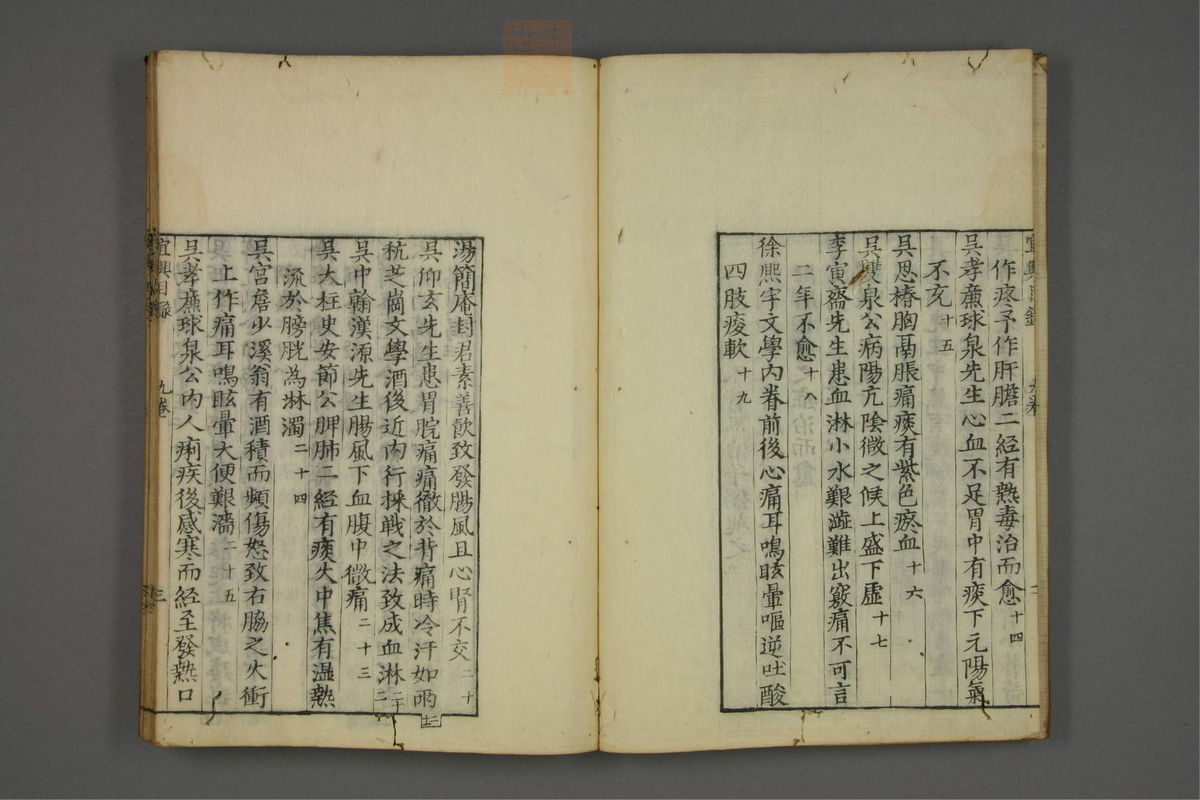 作疼予作肝膽二經有熱毒治而愈十四
吳孝廉球泉先生心血不足胃中有痰下元陽氣
不充十五
吳思椿胸鬲脹痛痰有紫色瘀血十六
吳雙泉公病陽亢陰微之候上盛下虛十七
李寅齋先生患血淋小水艱澁難出竅痛不可言
二年不愈十八
徐熙宇文學內眷前後心痛耳鳴眩暈嘔逆吐酸
四肢痠軟十九
湯簡庵封君素善飲致發腸風且心腎不交二十
吳仰玄先生患胃脘痛痛徹於背痛時冷汗如雨
杭芝崗文學酒後近內行採戰之法致成血淋二十二
吳中翰漢源先生腸風下血腹中微痛二十三
吳大柱史安節公脾肺二經有痰火中焦有濕熱
流於膀胱為淋濁二十四
吳宮詹少溪翁有酒積而頻傷怒致右脇之火衝
上作痛耳鳴眩暈大便難濇二十五
吳孝廉球泉公內人痢疾後感寒而經至發熱口
宜興目錄 九卷 三